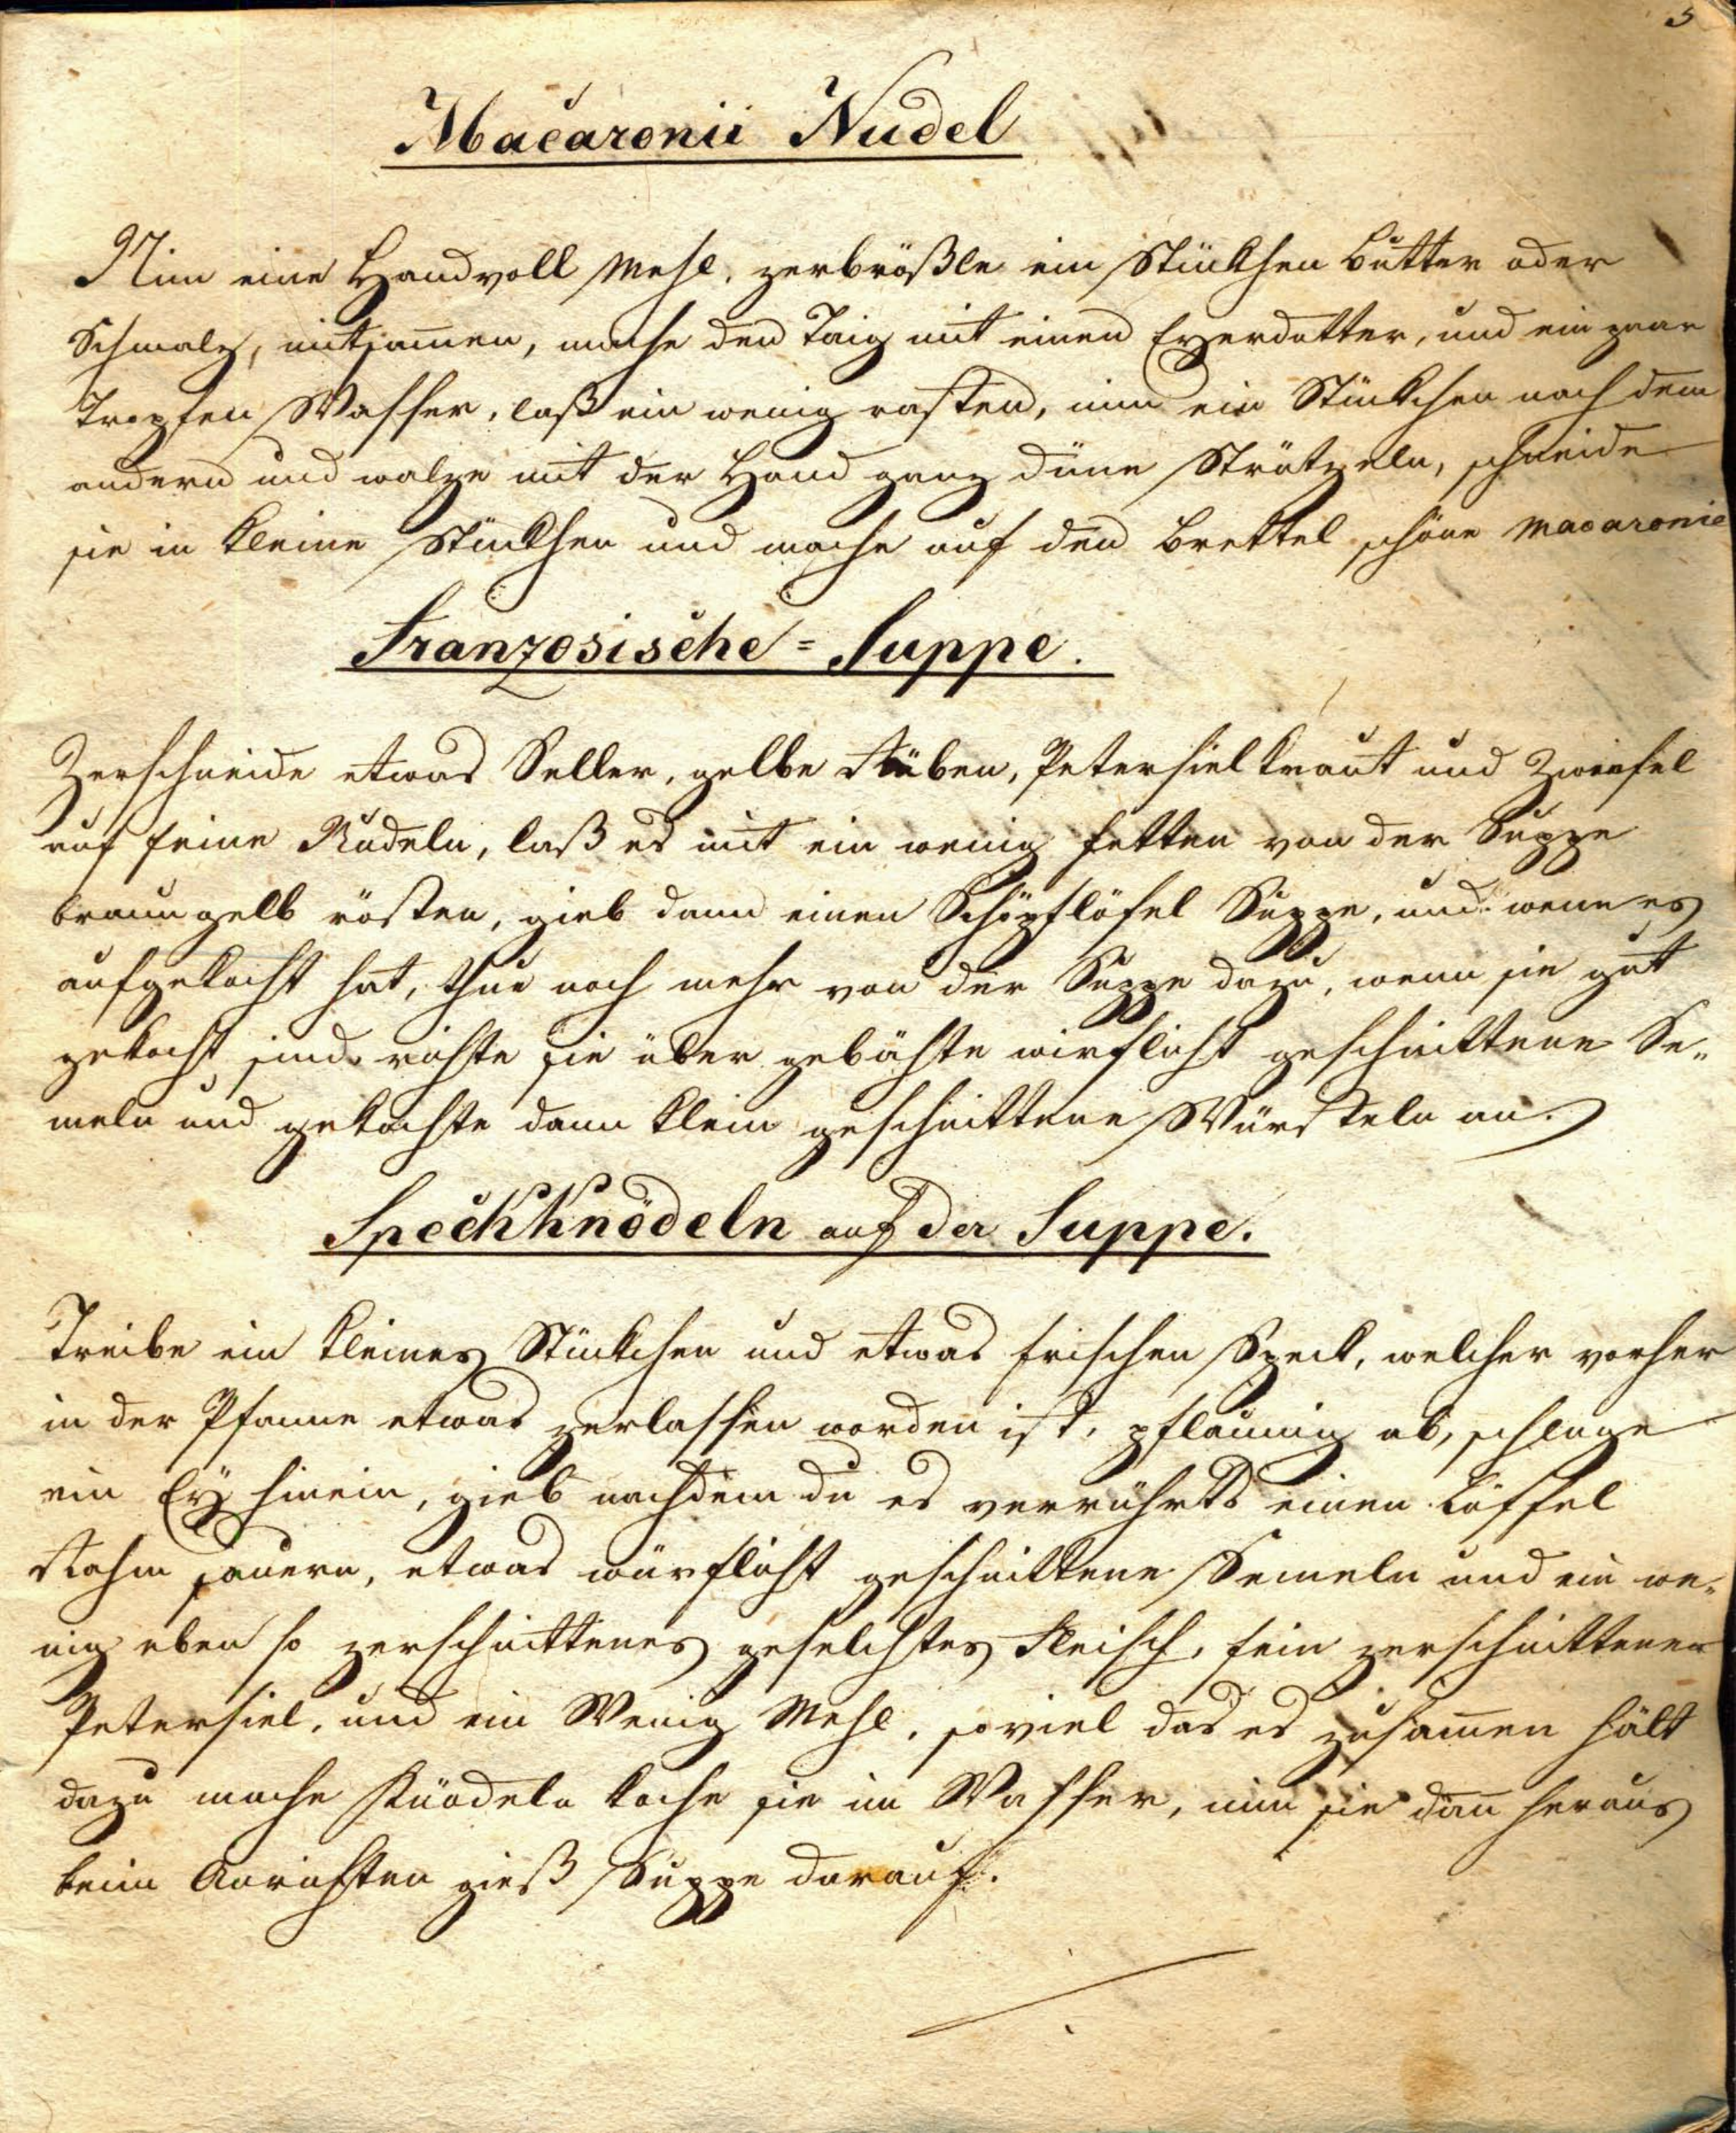 5
Macaronii Nudel
Nim eine Handvoll Mehl, zerbrößle ein Stückhen Butter oder
Schmalz, mitsam̄en, mache den Taig mit einen Eyerdotter, und ein paar
Tropfen Wasser, laß ein wenig rasten, nim ein Stückchen nach dem
andern und walze mit der Hand ganz düne Strützeln, schneide
sie in kleine Stückhen und mache auf den Brettel schöne Macaronie
Franzosische=Suppe.
Zerschneide etwas Seller, gelbe Rüben, Petersielkraut und Zwiefel
auf feine Nudeln, laß es mit ein wenig fetten von der Suppe
braungelb rösten, gieb dann einen Schöpflöfel Suppe, und wenn es
aufgekocht hat, thue noch mehr von der Suppe dazu, wenn sie gut
gekocht sind richte sie über gebähte wirflicht geschnittene Se„
meln und gekochte dann klein geschnittene Würsteln an.
Speckknödeln auf der Suppe.
Treibe ein kleines Stückchen und etwas frischen Speck, welcher vorher
in der Pfanne etwas zerlassen worden ist, pflaumig ab, schlage
ein Ey hinein, gieb nachdem du es verrührts einen Löffel
Rahm sauern, etwas würflicht geschnittene Semeln und ein we„
nig eben so zerschnittenes geselchtes Fleisch, fein zerschnittenen
Petersiel, und ein Wenig Mehl, soviel das es zusam̄en hält
dazu mache Knödeln koche sie im Wasser, nim sie dan̄ heraus
beim Anrichten gieß Suppe darauf.